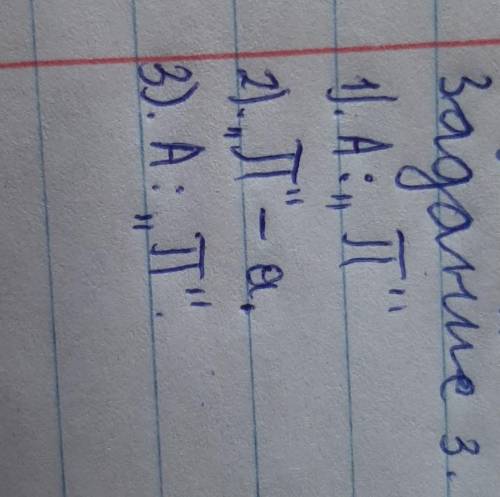 Задание 3.
1). А: „П“
2). „П“ – а.
3). А: „П“.